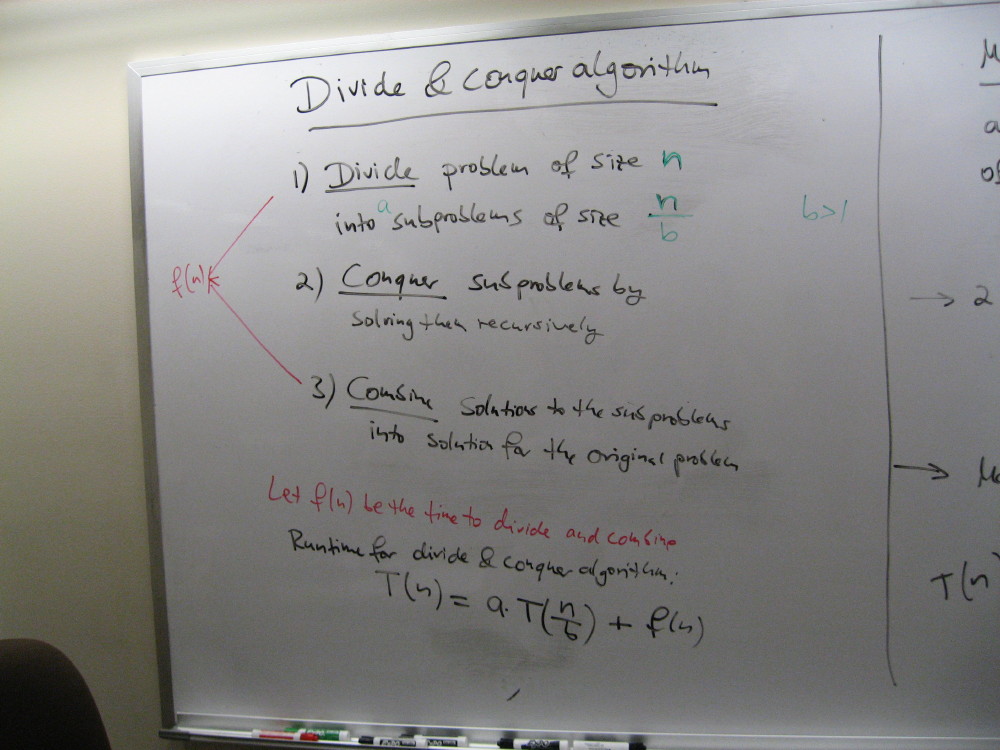 Divide & Conquer algorithm
1) Divide problem of size n
into a subproblems of size n/b
b>1
f(n)
2) Conquer subproblems by
solving them recursively
3) Combine solutions to the subproblems
into solution for the original problem
Let f(n) be the time to divide and combine
Runtime for divide & conquer algorithm:
T(n) = a · T(n/b) + f(n)
a
of
→ 2
→
T(n)